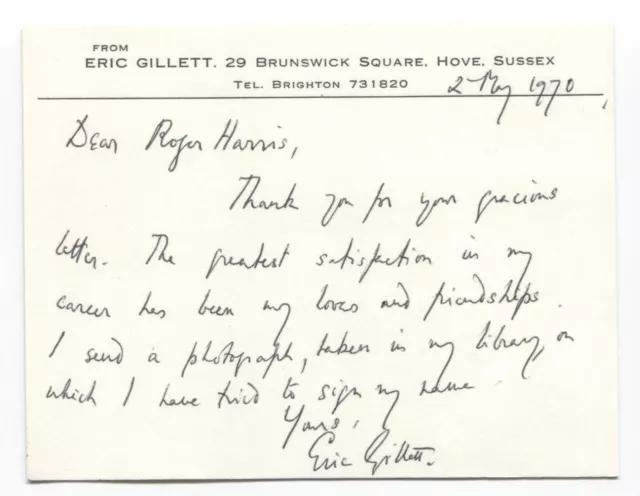 FROM
ERIC GILLETT. 29 BRUNSWICK SQUARE, HOVE, SUSSEX
TEL. BRIGHTON 731820
2 May 1970
Dear Roger Harris,
Thank you for your gracious
letter. The greatest satisfaction in my
career has been my loves and friendships.
I send a photograph, taken in my library, on
which I have tried to sign my name
Yours,
Eric Gillett.